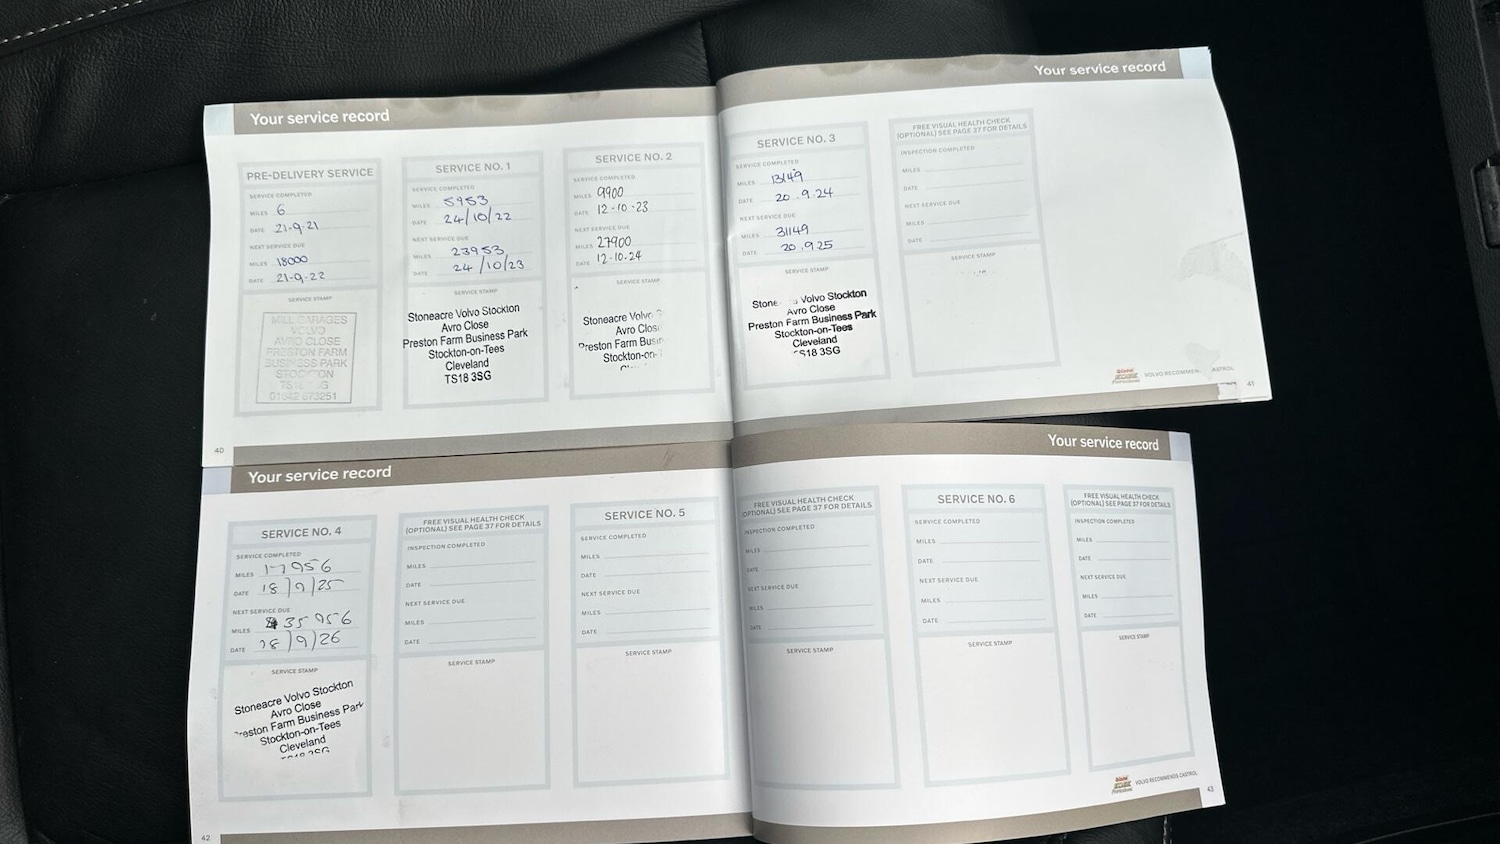 Your service record
PRE-DELIVERY SERVICE
SERVICE COMPLETED
MILES 6
DATE 21-9-21
NEXT SERVICE DUE
MILES 18000
DATE 21-9-22
SERVICE STAMP
MILL GARAGES
VOLVO
AVRO CLOSE
PRESTON FARM
BUSINESS PARK
STOCKTON
01642 673251
SERVICE NO. 1
SERVICE COMPLETED
MILES 5953
DATE 24/10/22
NEXT SERVICE DUE
MILES 23953
DATE 24/10/23
SERVICE STAMP
Stoneacre Volvo Stockton
Avro Close
Preston Farm Business Park
Stockton-on-Tees
Cleveland
TS18 3SG
SERVICE NO. 2
SERVICE COMPLETED
MILES 9900
DATE 12-10-23
NEXT SERVICE DUE
MILES 27900
DATE 12-10-24
SERVICE STAMP
Stoneacre Volvo
Avro Clos
Preston Farm Busin
Stockton-on-
40
Your service record
SERVICE NO. 3
SERVICE COMPLETED
MILES 13149
DATE 20.9.24
NEXT SERVICE DUE
MILES 31149
DATE 20.9.25
SERVICE STAMP
Stone Volvo Stockton
Avro Close
Preston Farm Business Park
Stockton-on-Tees
Cleveland
S18 3SG
FREE VISUAL HEALTH CHECK
(OPTIONAL) SEE PAGE 37 FOR DETAILS
INSPECTION COMPLETED
MILES
DATE
NEXT SERVICE DUE
MILES
DATE
SERVICE STAMP
VOLVO RECOMMEN ASTROL
41
Your service record
SERVICE NO. 4
SERVICE COMPLETED
MILES 17956
DATE 18/9/25
NEXT SERVICE DUE
MILES 35956
DATE 18/9/26
SERVICE STAMP
Stoneacre Volvo Stockton
Avro Close
reston Farm Business Park
Stockton-on-Tees
Cleveland
FREE VISUAL HEALTH CHECK
(OPTIONAL) SEE PAGE 37 FOR DETAILS
INSPECTION COMPLETED
MILES
DATE
NEXT SERVICE DUE
MILES
DATE
SERVICE STAMP
SERVICE NO. 5
SERVICE COMPLETED
MILES
DATE
NEXT SERVICE DUE
MILES
DATE
SERVICE STAMP
42
Your service record
FREE VISUAL HEALTH CHECK
(OPTIONAL) SEE PAGE 37 FOR DETAILS
INSPECTION COMPLETED
MILES
DATE
NEXT SERVICE DUE
MILES
DATE
SERVICE STAMP
SERVICE NO. 6
SERVICE COMPLETED
MILES
DATE
NEXT SERVICE DUE
MILES
DATE
SERVICE STAMP
FREE VISUAL HEALTH CHECK
(OPTIONAL) SEE PAGE 37 FOR DETAILS
INSPECTION COMPLETED
MILES
DATE
NEXT SERVICE DUE
MILES
DATE
SERVICE STAMP
VOLVO RECOMMENDS CASTROL
43